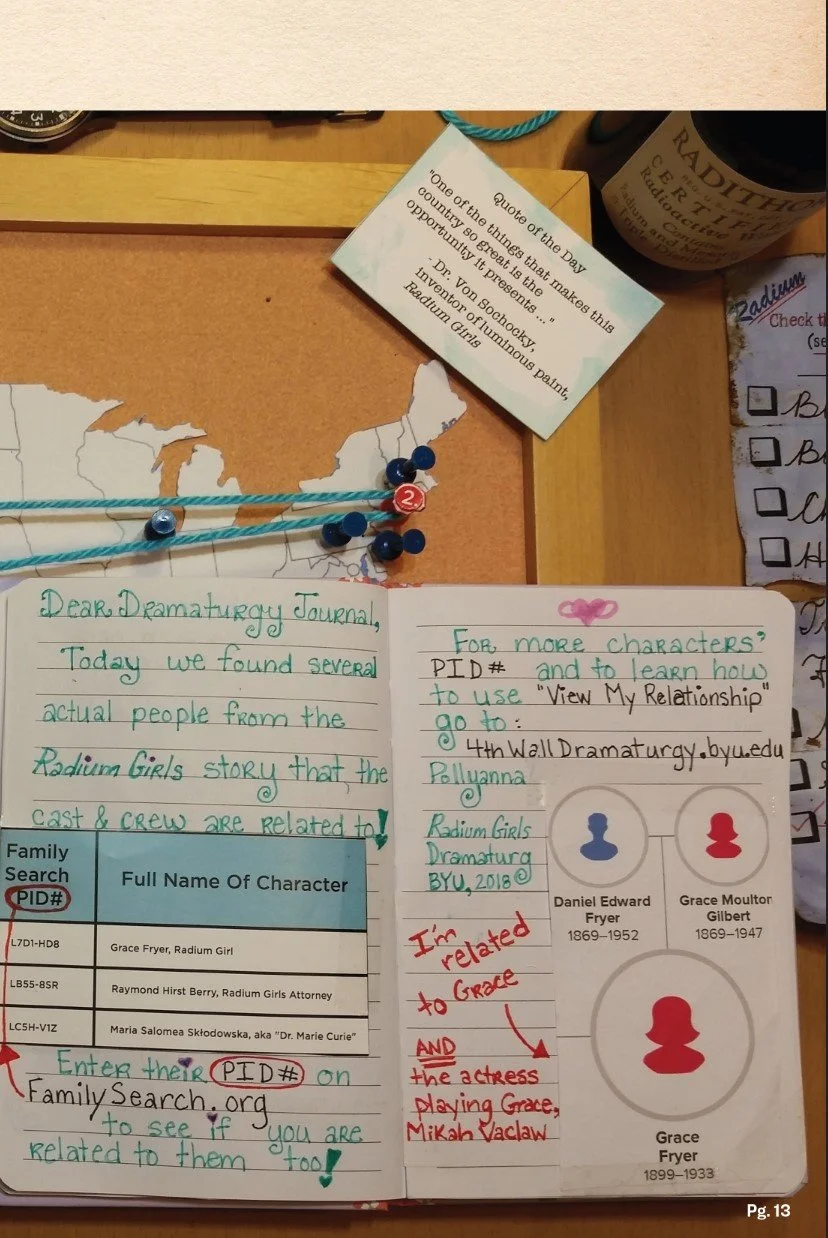 Quote of the Day
"One of the things that makes this
country so great is the
opportunity it presents ..."
- Dr. Von Sochocky,
inventor of luminous paint,
Radium Girls
RADITHO
CERTIFI
Radioactive W
Radium and Meso
Radium
Check th
(se
2.
Dear Dramaturgy Journal,
Today we found several
actual people from the
Radium Girls story that the
cast & crew are related to!
Family
Search
PID#
Full Name Of Character
L7D1-HD8
Grace Fryer, Radium Girl
LB55-8SR
Raymond Hirst Berry, Radium Girls Attorney
LC5H-V1Z
Maria Salomea Skłodowska, aka "Dr. Marie Curie"
Enter their PID# on
FamilySearch.org
to see if you are
related to them too!
For more characters'
PID# and to learn how
to use "View My Relationship"
go to:
4thWallDramaturgy.byu.edu
Pollyanna
Radium Girls
Dramaturg
BYU, 2018
I'm
related
to Grace
AND
the actress
playing Grace,
Mikah Vaclaw
Daniel Edward
Fryer
1869–1952
Grace Moulton
Gilbert
1869–1947
Grace
Fryer
1899–1933
Pg. 13